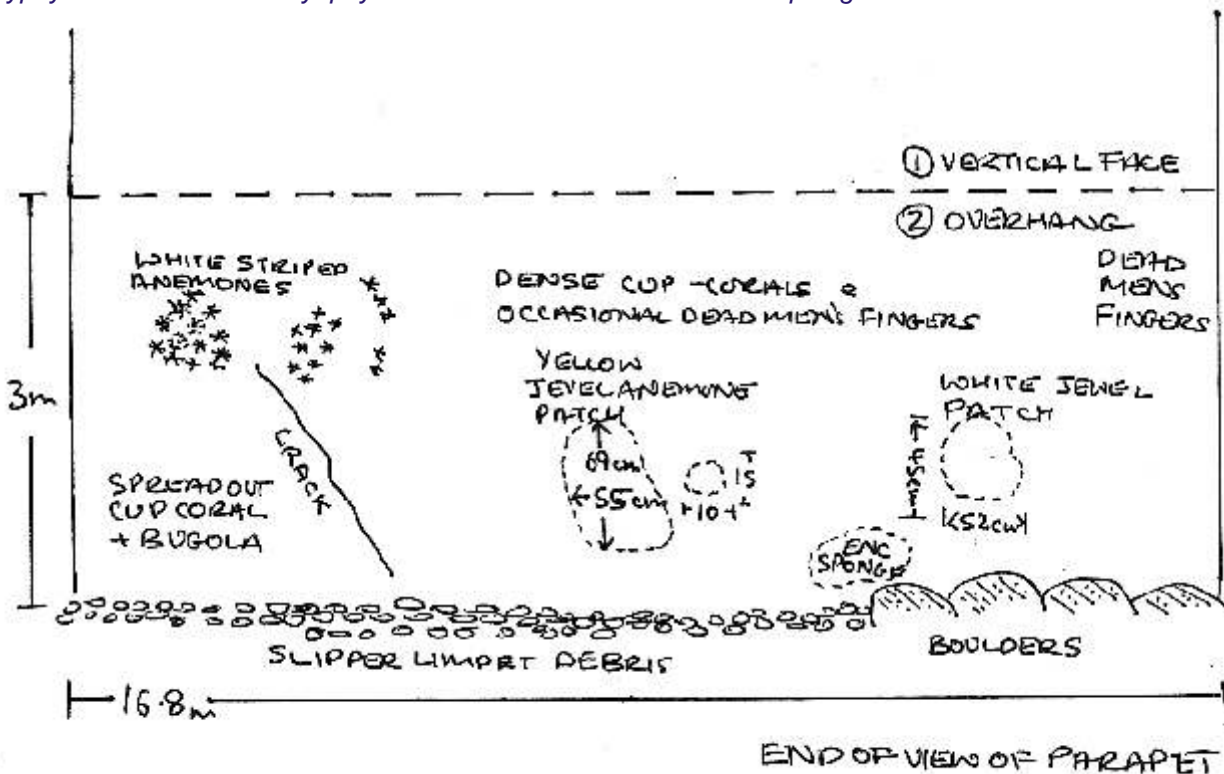 ① VERTICAL FACE
② OVERHANG
WHITE STRIPED
ANEMONES
DENSE CUP-CORALS &
OCCASIONAL DEAD MEN'S FINGERS
DEAD
MENS
FINGERS
3m
YELLOW
JEVEL ANEMONE
PATCH
69cm
55cm
15
10
WHITE JEWEL
PATCH
45cm
52cm
CRACK
SPREAD OUT
CUP CORAL
+ BUGOLA
ENC
SPONGE
SLIPPER LIMPET DEBRIS
BOULDERS
16.8m
END OF VIEW OF PARAPET